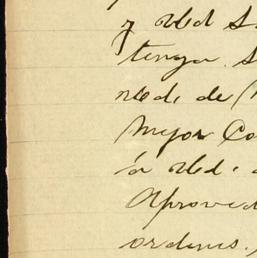 y Ud S
tenga. S
Ud. de
mejor Co
á Ud.
Aproved
ordenes.